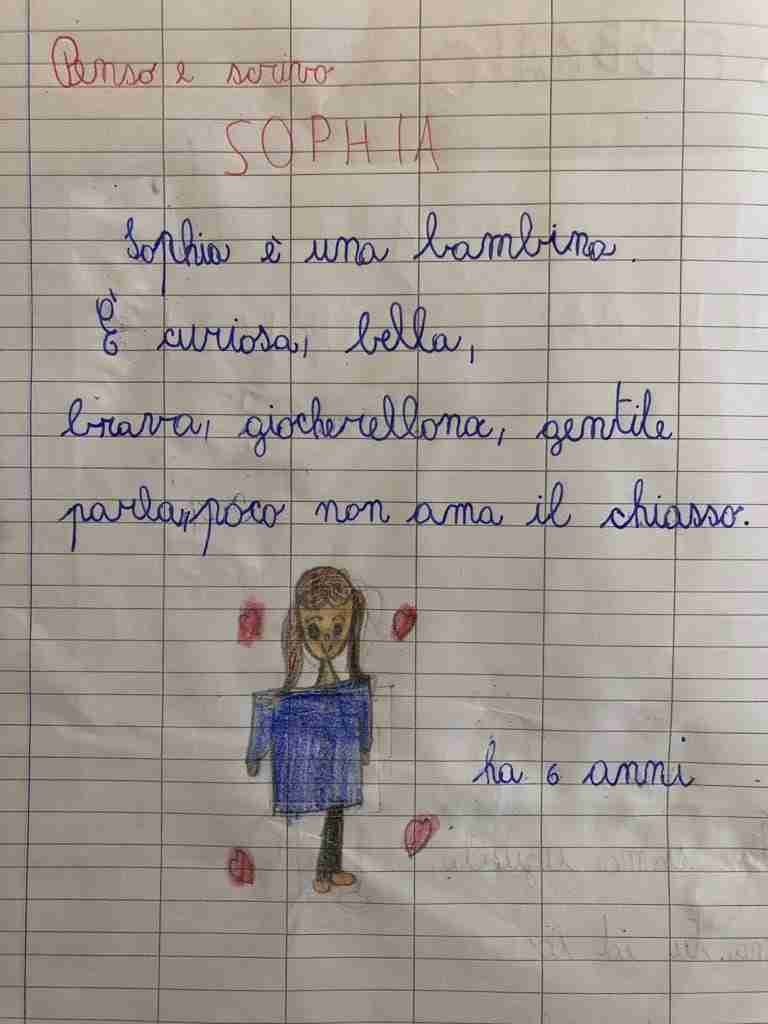 Penso e scrivo
SOPHIA
Sophia è una bambina.
È curiosa, bella,
brava, giocherellona, gentile
parla, poco non ama il chiasso.
ha 6 anni